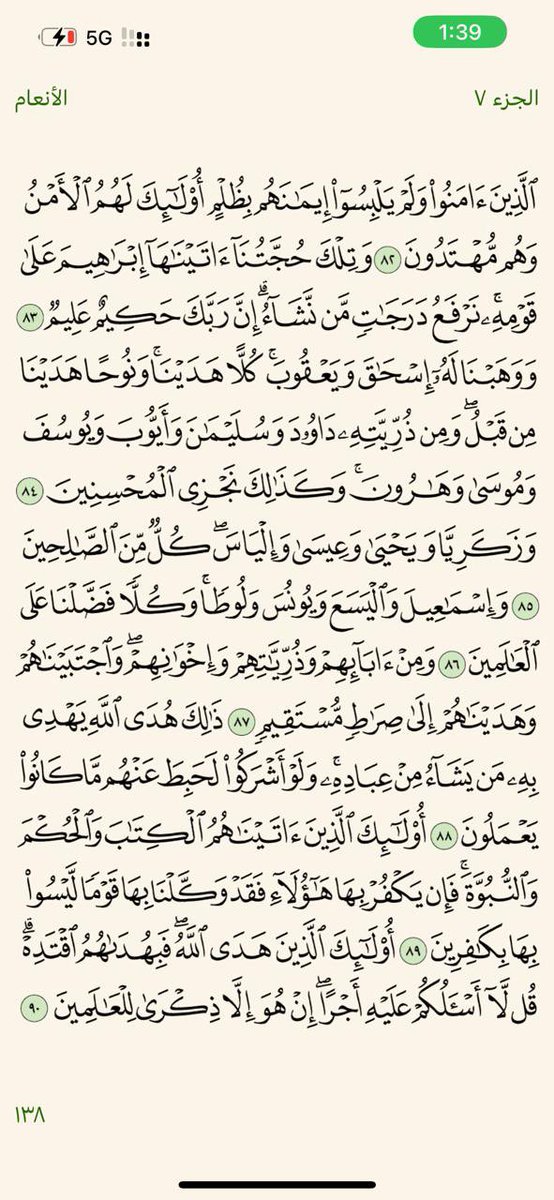 5G
1:39
الجزء ٧
الأنعام
ٱلَّذِينَ ءَامَنُواْ وَلَمۡ يَلۡبِسُوٓاْ إِيمَٰنَهُم بِظُلۡمٍ أُوْلَٰٓئِكَ لَهُمُ ٱلۡأَمۡنُ
وَهُم مُّهۡتَدُونَ ٨٢ وَتِلۡكَ حُجَّتُنَآ ءَاتَيۡنَٰهَآ إِبۡرَٰهِيمَ عَلَىٰ
قَوۡمِهِۦۚ نَرۡفَعُ دَرَجَٰتٖ مَّن نَّشَآءُۗ إِنَّ رَبَّكَ حَكِيمٌ عَلِيمٞ ٨٣
وَوَهَبۡنَا لَهُۥٓ إِسۡحَٰقَ وَيَعۡقُوبَۚ كُلًّا هَدَيۡنَاۚ وَنُوحًا هَدَيۡنَا
مِن قَبۡلُۖ وَمِن ذُرِّيَّتِهِۦ دَاوُۥدَ وَسُلَيۡمَٰنَ وَأَيُّوبَ وَيُوسُفَ
وَمُوسَىٰ وَهَٰرُونَۚ وَكَذَٰلِكَ نَجۡزِي ٱلۡمُحۡسِنِينَ ٨٤
وَزَكَرِيَّا وَيَحۡيَىٰ وَعِيسَىٰ وَإِلۡيَاسَۖ كُلّٞ مِّنَ ٱلصَّٰلِحِينَ
٨٥ وَإِسۡمَٰعِيلَ وَٱلۡيَسَعَ وَيُونُسَ وَلُوطٗاۚ وَكُلّٗا فَضَّلۡنَا عَلَى
ٱلۡعَٰلَمِينَ ٨٦ وَمِنۡ ءَابَآئِهِمۡ وَذُرِّيَّٰتِهِمۡ وَإِخۡوَٰنِهِمۡۖ وَٱجۡتَبَيۡنَٰهُمۡ
وَهَدَيۡنَٰهُمۡ إِلَىٰ صِرَٰطٖ مُّسۡتَقِيمٖ ٨٧ ذَٰلِكَ هُدَى ٱللَّهِ يَهۡدِي
بِهِۦ مَن يَشَآءُ مِنۡ عِبَادِهِۦۚ وَلَوۡ أَشۡرَكُواْ لَحَبِطَ عَنۡهُم مَّا كَانُواْ
يَعۡمَلُونَ ٨٨ أُوْلَٰٓئِكَ ٱلَّذِينَ ءَاتَيۡنَٰهُمُ ٱلۡكِتَٰبَ وَٱلۡحُكۡمَ
وَٱلنُّبُوَّةَۚ فَإِن يَكۡفُرۡ بِهَا هَٰٓؤُلَآءِ فَقَدۡ وَكَّلۡنَا بِهَا قَوۡمٗا لَّيۡسُواْ
بِهَا بِكَٰفِرِينَ ٨٩ أُوْلَٰٓئِكَ ٱلَّذِينَ هَدَى ٱللَّهُۖ فَبِهُدَىٰهُمُ ٱقۡتَدِهۡۗ
قُل لَّآ أَسۡـَٔلُكُمۡ عَلَيۡهِ أَجۡرًاۖ إِنۡ هُوَ إِلَّا ذِكۡرَىٰ لِلۡعَٰلَمِينَ ٩٠
١٣٨